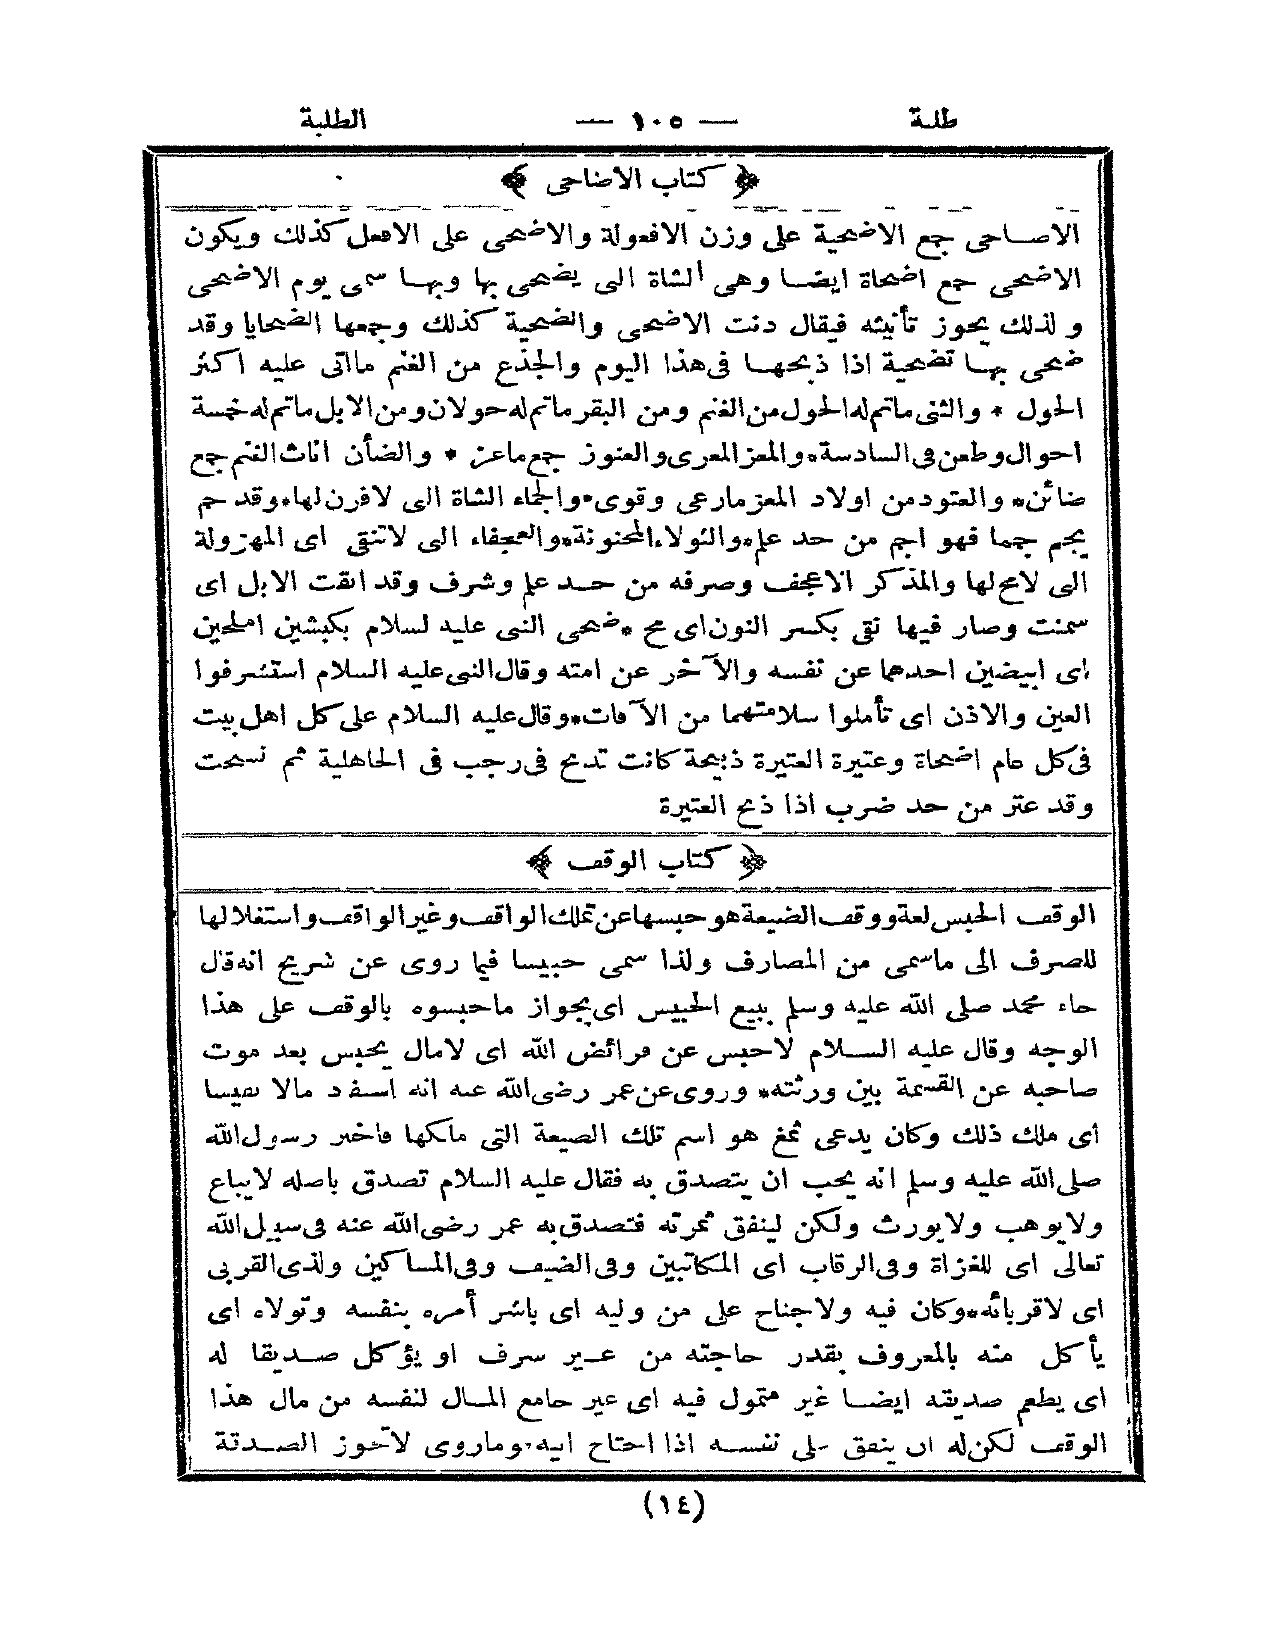 طلبة — ١٠٥ — الطلبة
﴿ كتاب الاضاحى ﴾
الاضاحى جمع الاضحية على وزن الافعولة والاضحى على الافعل كذلك ويكون
الاضحى جمع اضحاة ايضا وهى الشاة التى يضحى بها وبها سمى يوم الاضحى
و لذلك يجوز تأنيثه فيقال دنت الاضحى والضحية كذلك وجمعها الضحايا وقد
ضحى بها تضحية اذا ذبحها فى هذا اليوم والجذع من الغنم ماأتى عليه اكثر
الحول * والثنى ماتم له الحول من الغنم ومن البقر ماتم له حولان ومن الابل ماتم له خمسة
احوال وطعن فى السادسة * والمعز المعزى والعنوز جمع ماعز * والضأن اناث الغنم جمع
ضائن * والعتود من اولاد المعز مارعى وقوى * والجماء الشاة التى لاقرن لها * وقد جم
يجم جمما فهو اجم من حد علم * والثولاء المجنونة * والعجفاء التى لاتنقى اى المهزولة
التى لامخ لها والمذكر الاعجف وصرفه من حد علم وشرف وقد انقت الابل اى
سمنت وصار فيها نقى بكسر النون اى مخ * ضحى النبى عليه لسلام بكبشين املحين
اى ابيضين احدهما عن نفسه والآخر عن امته وقال النبى عليه السلام استشرفوا
العين والاذن اى تأملوا سلامتهما من الآفات * وقال عليه السلام على كل اهل بيت
فى كل عام اضحاة وعتيرة العتيرة ذبيحة كانت تذبح فى رجب فى الجاهلية ثم نسخت
وقد عتر من حد ضرب اذا ذبح العتيرة
﴿ كتاب الوقف ﴾
الوقف الحبس لغة ووقف الضيعة هو حبسها عن تملك الواقف وغير الواقف واستغلالها
للصرف الى ماسمى من المصارف ولذا سمى حبيسا فيما روى عن شريح انه قال
جاء محمد صلى الله عليه وسلم ببيع الحبيس اى بجواز ماحبسوه بالوقف على هذا
الوجه وقال عليه السلام لاحبس عن فرائض الله اى لامال يحبس بعد موت
صاحبه عن القسمة بين ورثته * وروى عن عمر رضى الله عنه انه استفاد مالا نفيسا
اى ملك ذلك وكان يدعى ثمغ هو اسم تلك الضيعة التى ملكها فاخبر رسول الله
صلى الله عليه وسلم انه يحب ان يتصدق به فقال عليه السلام تصدق باصله لايباع
ولايوهب ولايورث ولكن لينفق ثمرته فتصدق به عمر رضى الله عنه فى سبيل الله
تعالى اى للغزاة وفى الرقاب اى المكاتبين وفى الضيف وفى المساكين ولذى القربى
اى لاقربائه * وكان فيه ولاجناح على من وليه اى باشر أمره بنفسه وتولاه اى
يأكل منه بالمعروف بقدر حاجته من غير سرف او يؤكل صديقا له
اى يطعم صديقه ايضا غير متمول فيه اى غير جامع المال لنفسه من مال هذا
الوقف لكن له ان ينفق على نفسه اذا احتاج اليه * وماروى لاتجوز الصدقة
(١٤)